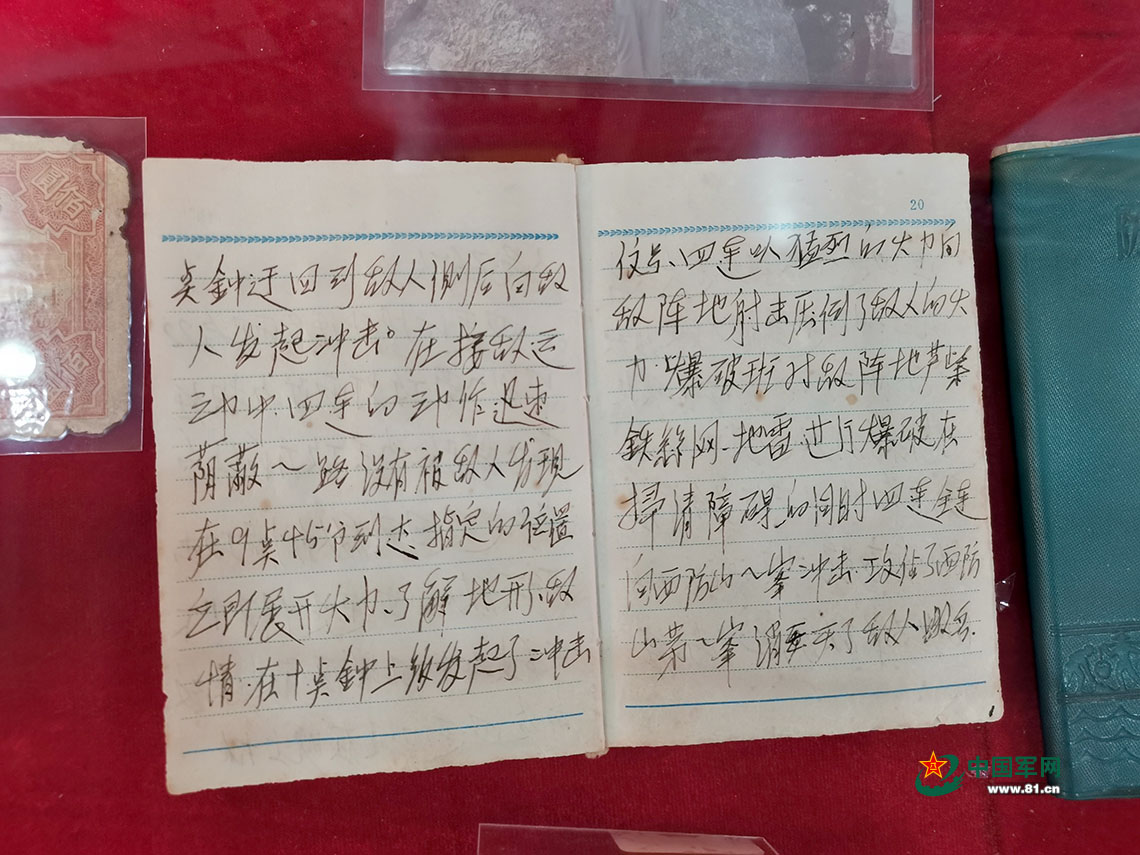 点钟迂回到敌人侧后向敌
人发起冲击。在接敌运
动中.四连的动作迅速
荫蔽一路没有被敌人发现
在9点45分到达指定的位置
立即展开火力、了解地形、敌
情.在十点钟上级发起了冲击
20
信号、四连以猛烈的火力向
敌阵地射击压倒了敌人的火
力.爆破班对敌阵地芦柴
铁絲网、地雷进行爆破在
扫清障碍的同时四连全连
向西防山一峯冲击.攻佔了西防
山第一峯消灭了敌人
佰圓
中国军网
www.81.cn